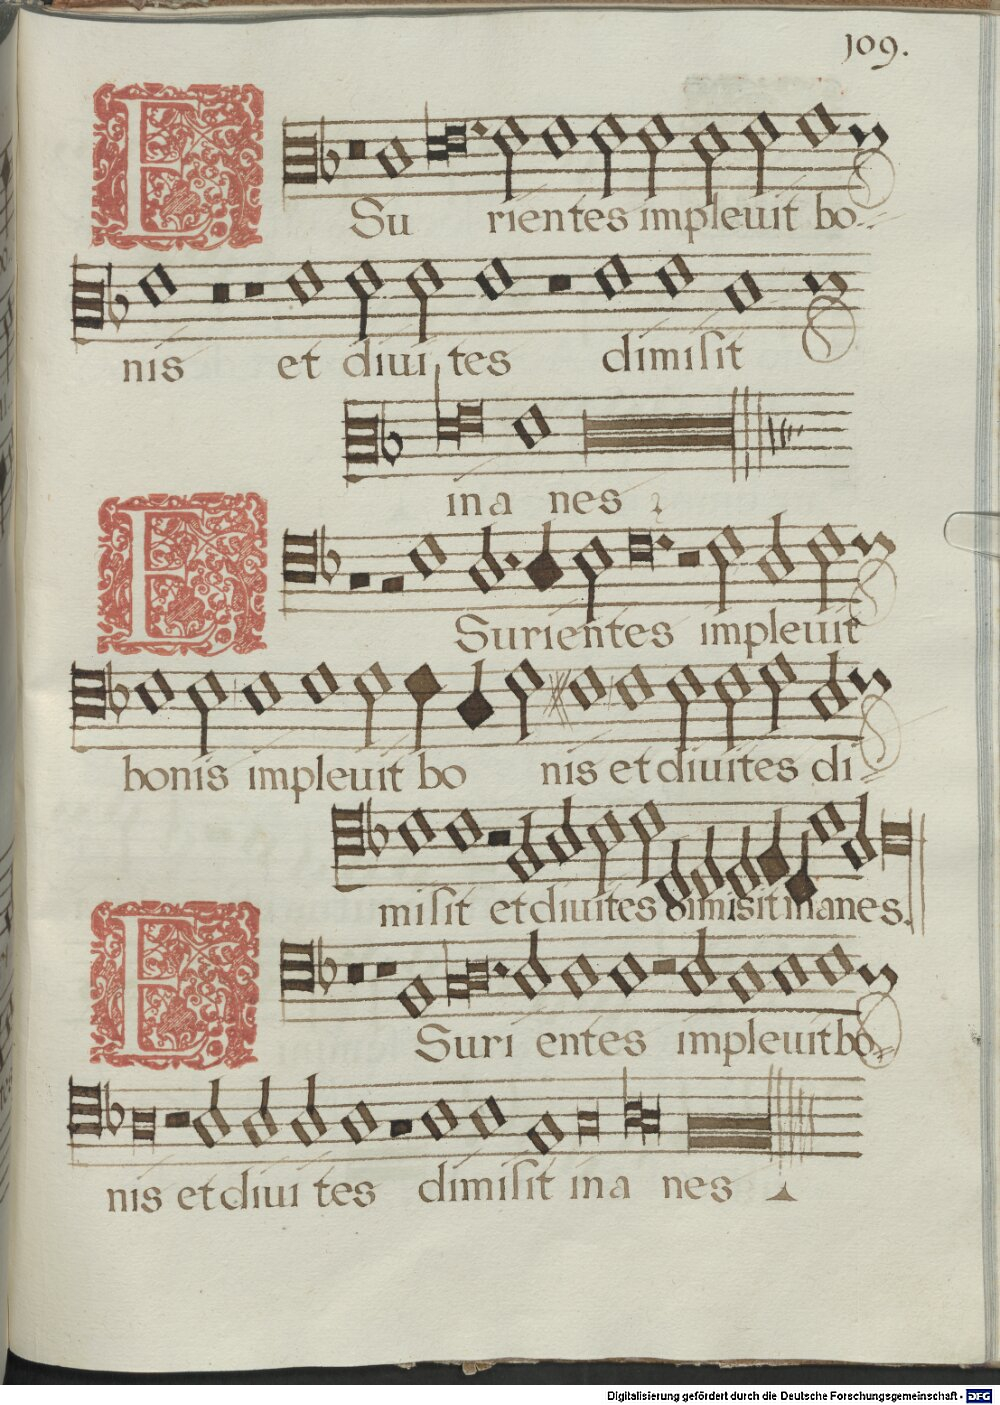 109.
ESu rientes impleuit bo
nis et diui tes dimisit
ina nes
ESurientes impleuit
bonis impleuit bo nis et diuites di
misit et diuites dimisit inanes.
ESuri entes impleuit bo
nis et diui tes dimisit ina nes
Digitalisierung gefördert durch die Deutsche Forschungsgemeinschaft - DFG